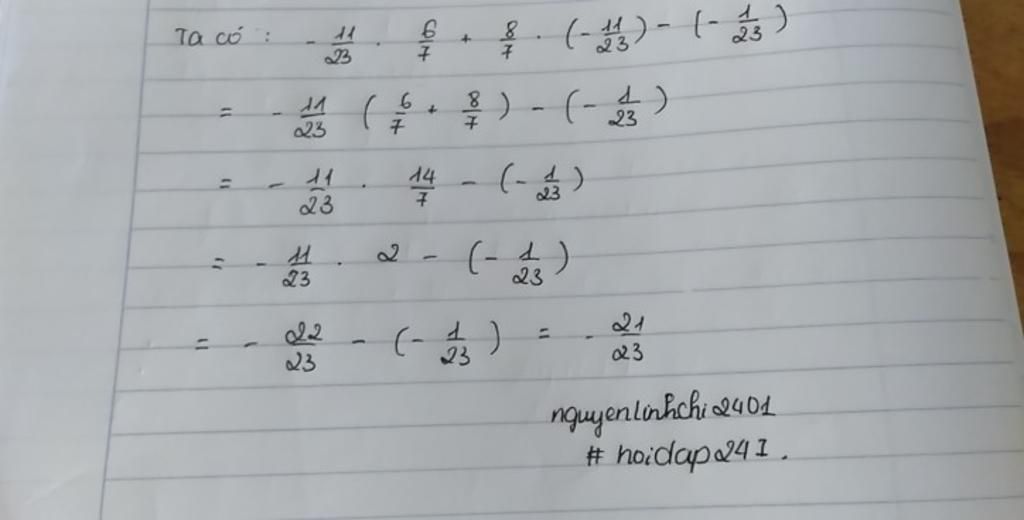 Ta có : - 11/23 . 6/7 + 8/7 . (- 11/23) - (- 1/23)
= - 11/23 ( 6/7 + 8/7 ) - (- 1/23 )
= - 11/23 . 14/7 - (- 1/23 )
= - 11/23 . 2 - (- 1/23 )
= - 22/23 - (- 1/23 ) = - 21/23
nguyenlinhchi2401
# hoidap24I .